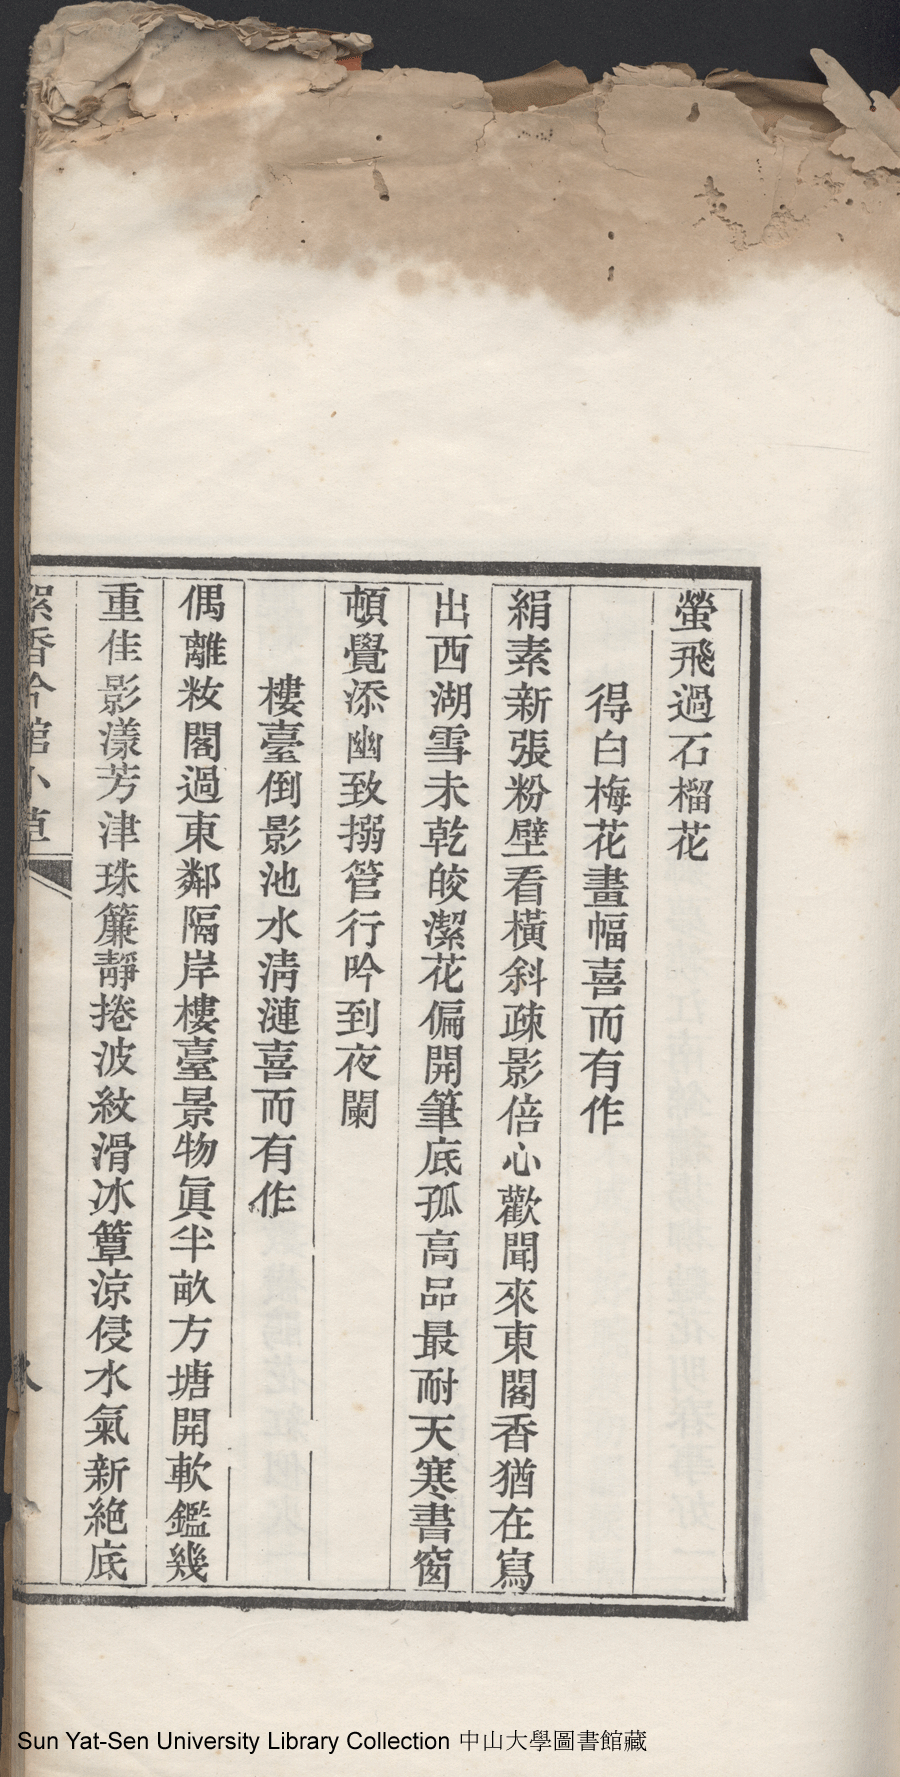 螢飛過石榴花
得白梅花畫幅喜而有作
絹素新張粉壁看橫斜疎影倍心歡聞來東閣香猶在寫
出西湖雪未乾皎潔花偏開筆底孤高品最耐天寒書窗
頓覺添幽致搦管行吟到夜闌
樓臺倒影池水淸漣喜而有作
偶離妝閣過東鄰隔岸樓臺景物眞半畝方塘開軟鑑幾
重佳影漾芳津珠簾靜捲波紋滑冰簟涼侵水氣新絶底
絮香吟館小草
Sun Yat-Sen University Library Collection 中山大學圖書館藏